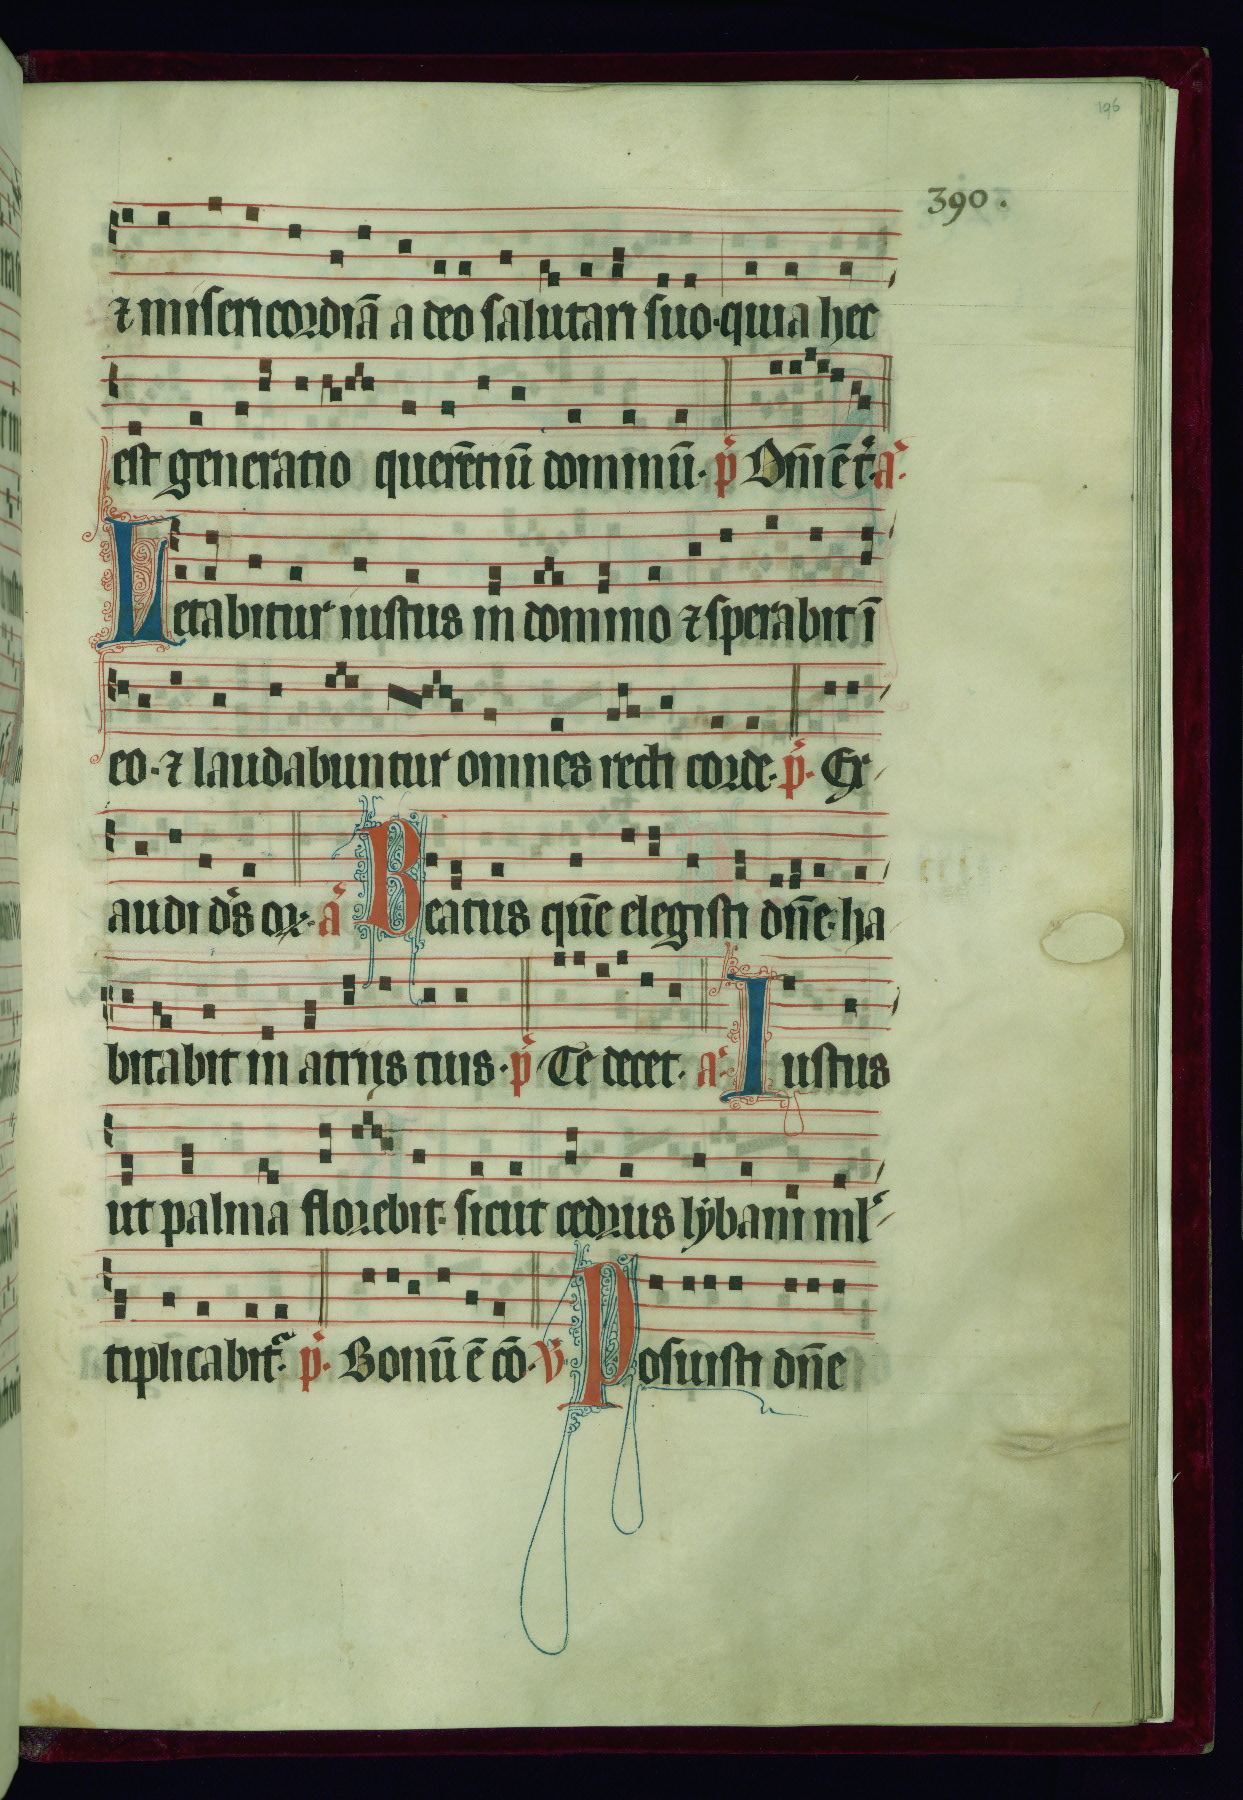 196
390.
⁊ misericordiā a deo salutari suo·quia hec
est generatio querētiū dominū· p̄ Dn̄i ē t̄r·a·
Letabitur iustus in domino ⁊ sperabit ī
eo·⁊ laudabuntur omnes recti corde· p̄· Ex
audi d̄s or· a Beatus quē elegisti dn̄e·ha
bitabit in atrijs tuis· p̄ Te decet· a· Iustus
ut palma florebit· sicut cedrus lybani ml̄
tiplicabit᷑· p̄· Bonū ē cō·v̄· Posuisti dn̄e